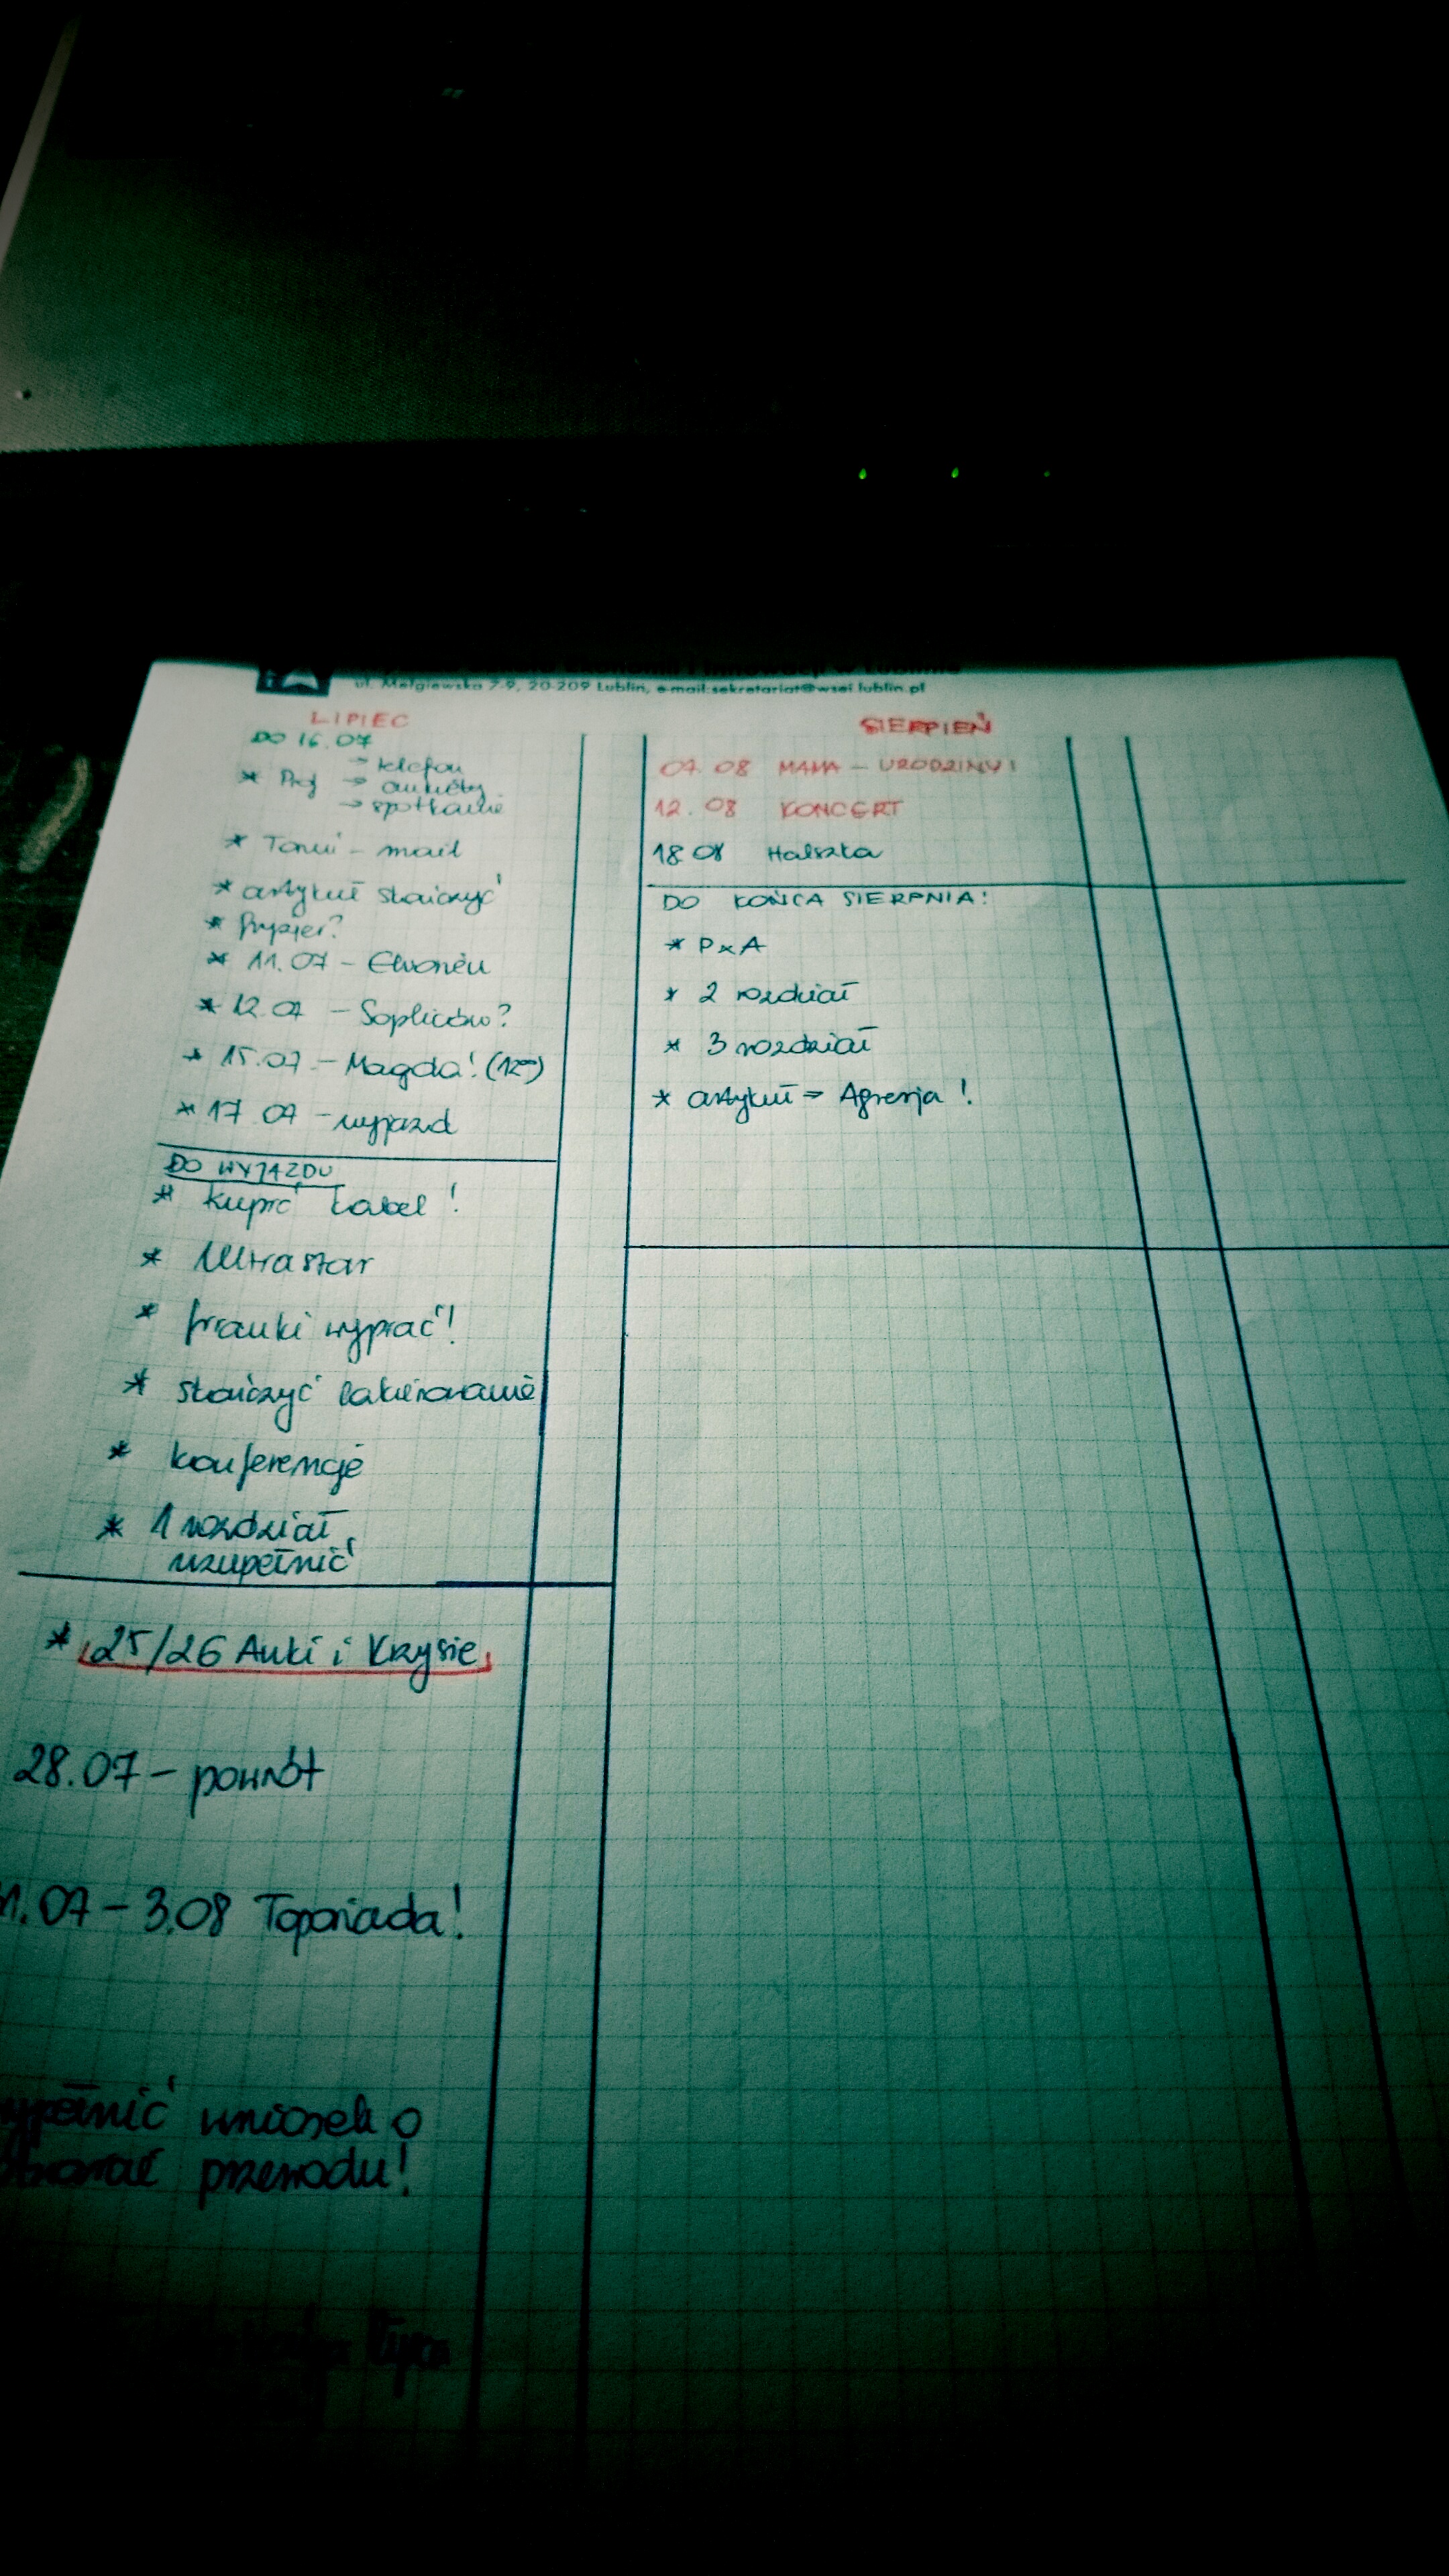 ul. Mełgiewska 7-9, 20-209 Lublin, e-mail:sekretariat@wsei.lublin.pl
LIPIEC
DO 16.07
→ telefon
* Prof → ankiety
→ spotkanie
* - mail
* artykuł skończyć
* fryzjer?
* 11.07 -
* 12.07 - Soplicowo?
* 15.07 - Magda! (12⁰⁰)
* 17.07 - wyjazd
DO WYJAZDU
* kupić kabel!
* Ultrastar
* firanki wyprać!
* skończyć lakierowanie
* konferencje
* 1 rozdział
uzupełnić
* 25/26 Anki i Krysie
28.07 - powrót
.07 - 3.08 Toporiada!
wniosek o
przewodu!
SIERPIEŃ
07.08 MAMA - URODZINY!
12.08 KONCERT
18.08 Halszka
DO KOŃCA SIERPNIA!
* PxA
* 2 rozdział
* 3 rozdział
* artykuł → Agresja!